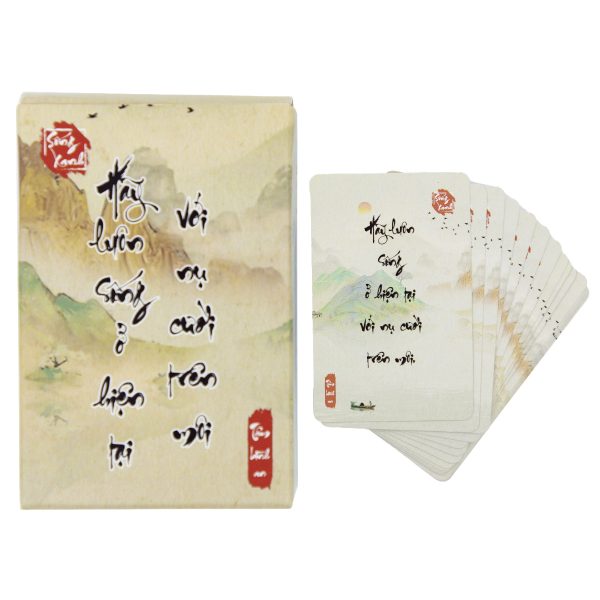 Sống
Xanh
Hãy
luôn
sống
ở
hiện
tại
với
nụ
cười
trên
môi
Tâm
bình
an
Sống
Xanh
Hãy luôn
sống
ở hiện tại
với nụ cười
trên môi.